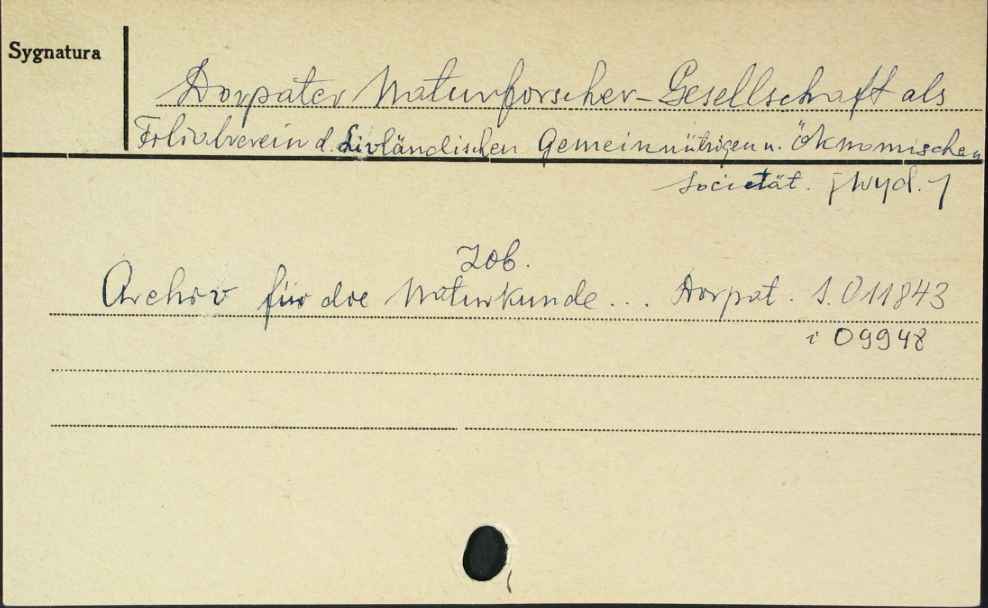 Sygnatura
Dorpater Naturforscher-Gesellschaft als
Filialverein d. Livländischen Gemeinnützigen u. Ökonomischen
Societät. [Wyd.]
Zob.
Archiv für die Naturkunde... Dorpat. S. 011843
i 09948